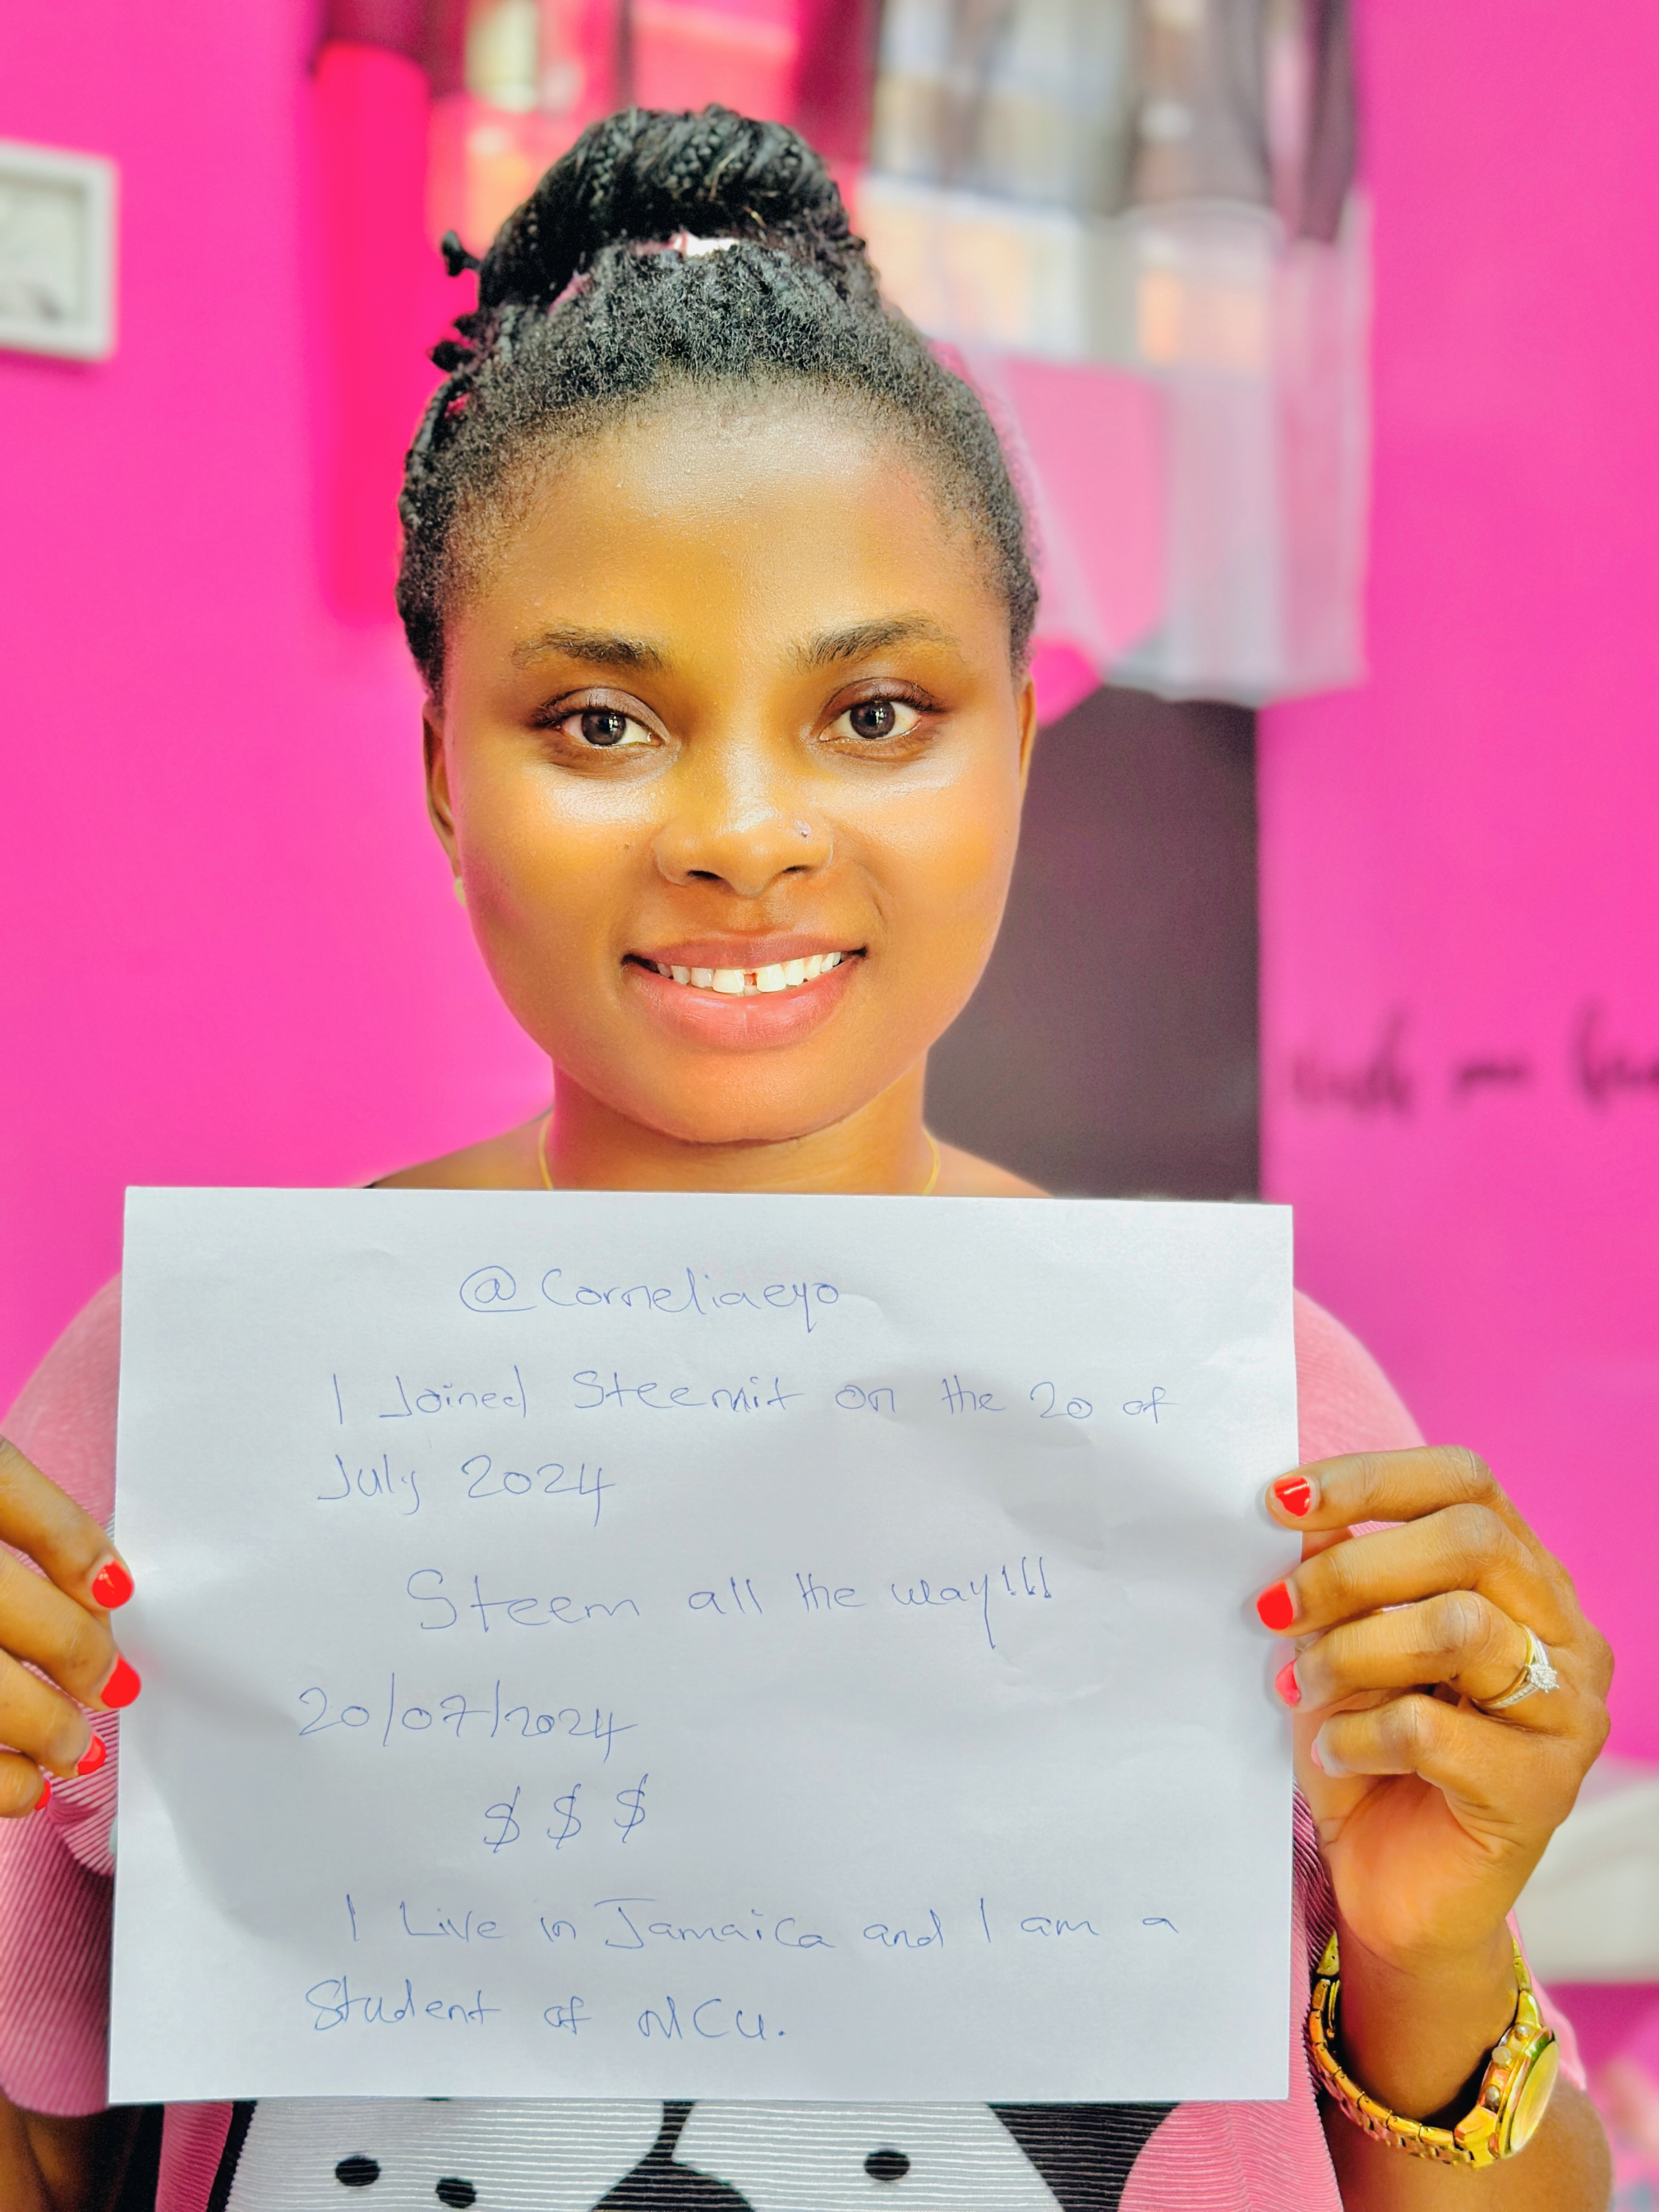 @Corneliaeyo
I Joined Steemit on the 20 of
July 2024
Steem all the way!!!
20/07/2024
$ $ $
I Live in Jamaica and I am a
Student of NCU.